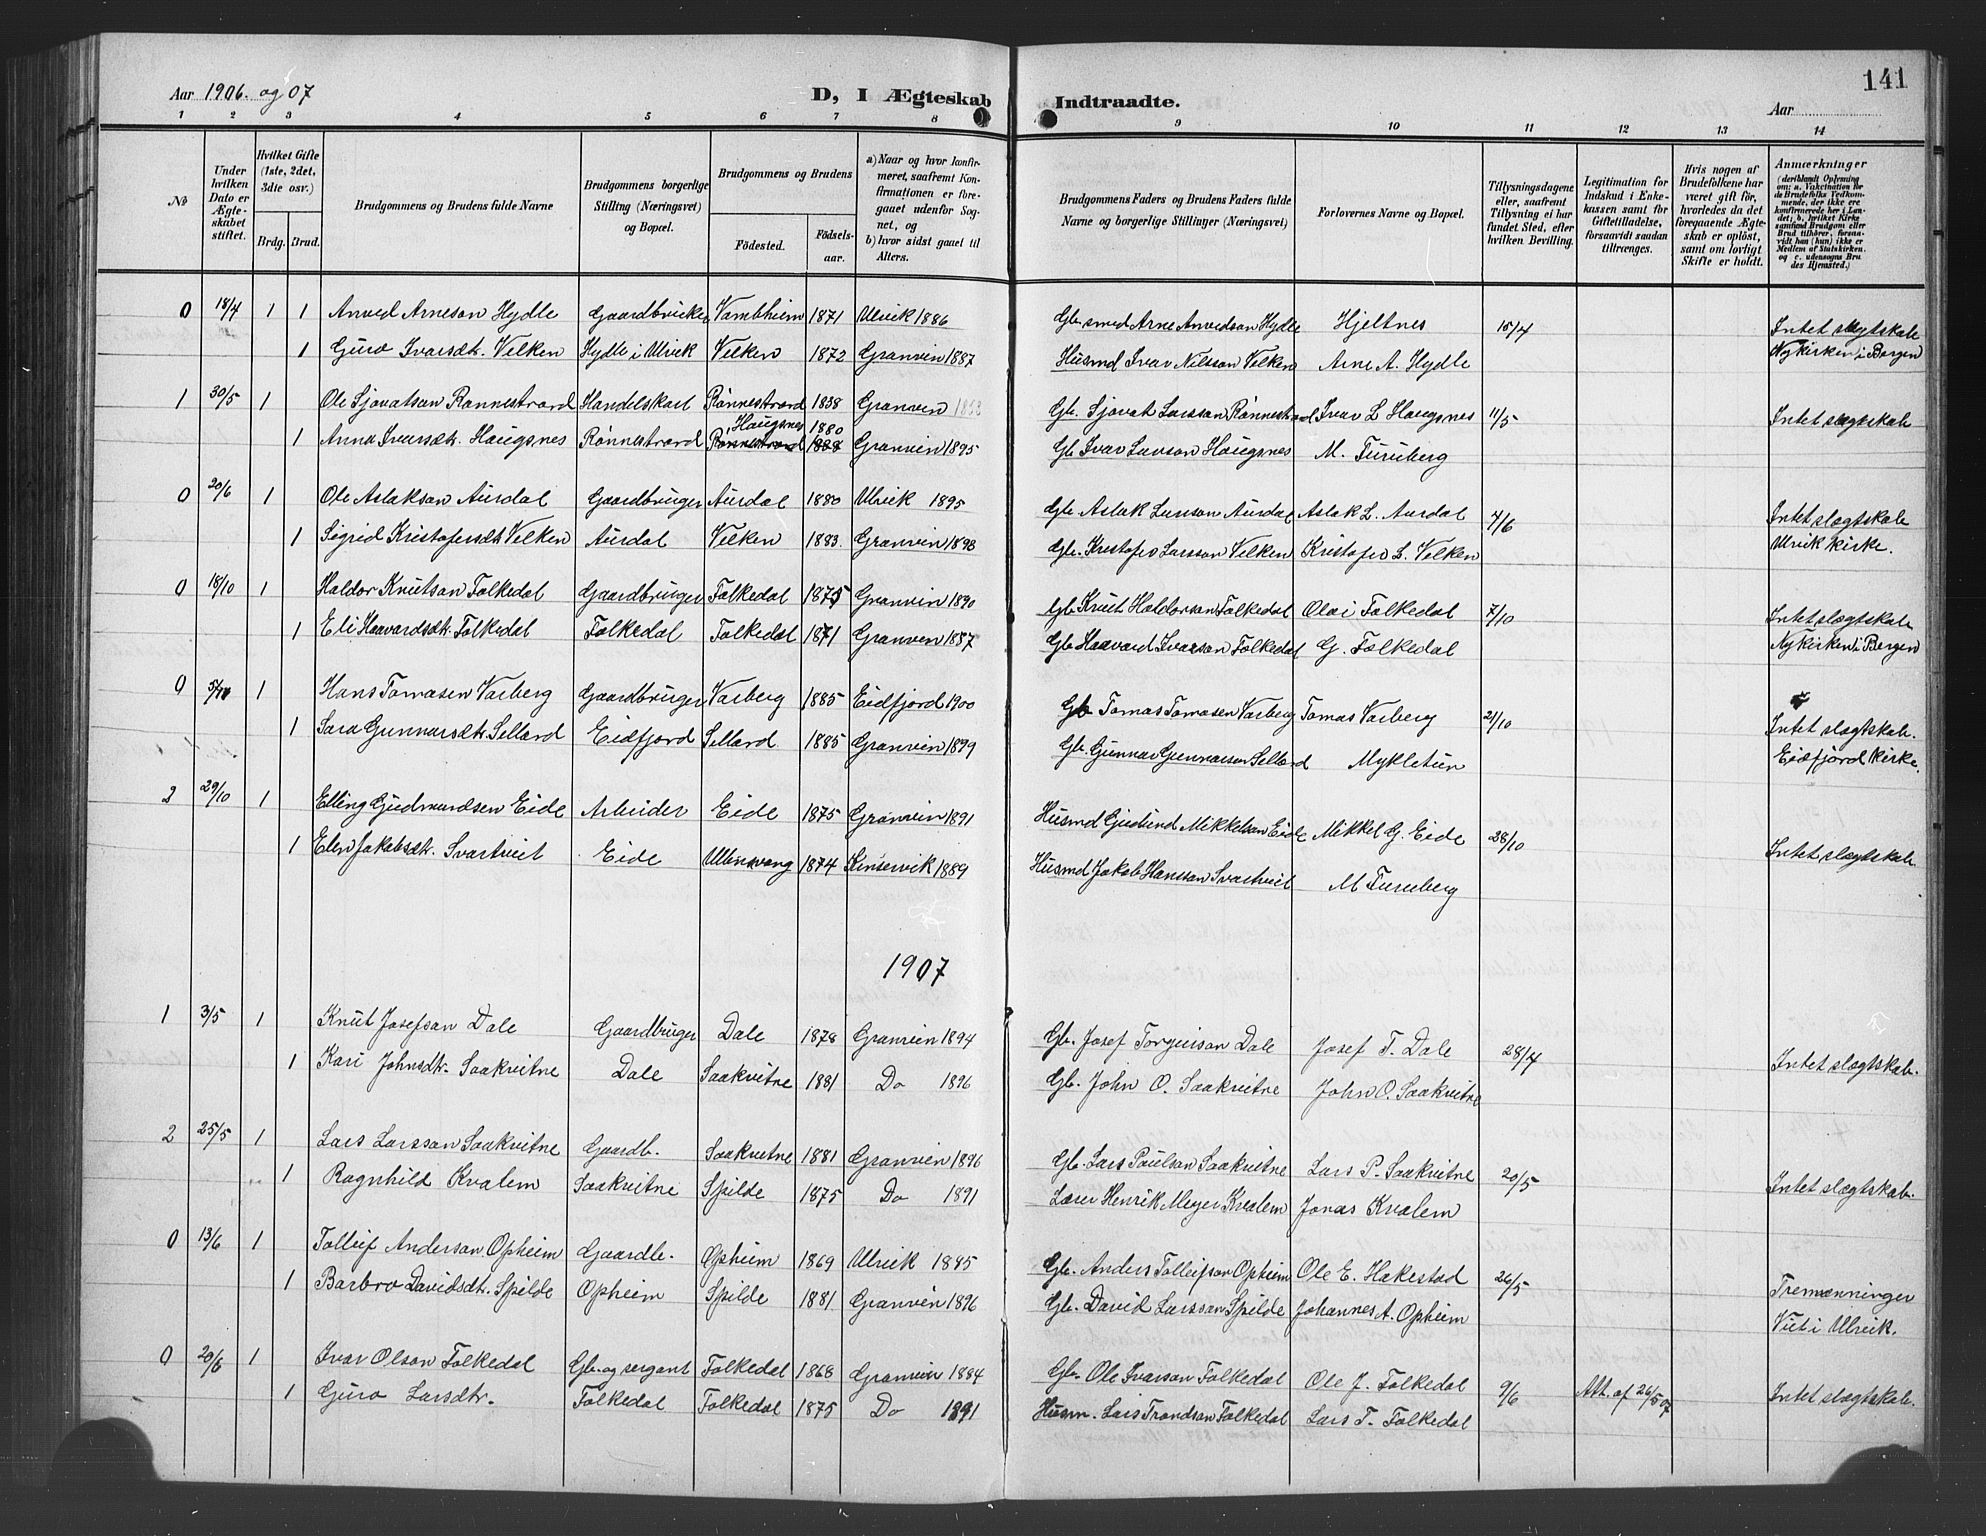 141
Aar 1906. og 07
D, I Ægteskab Indtraadte.
Aar
1 2 3 4 5 6 7 8 9 10 11 12 13 14
No
Under hvilken Dato er Ægteskabet stiftet.
Hvilket Gifte (1ste, 2det, 3die osv.)
Brdg. Brud.
Brudgommens og Brudens fulde Navne
Brudgommens borgerlige Stilling (Næringsvei) og Bopæl.
Brudgommens og Brudens
Födested. Födsels-aar.
a) Naar og hvor konfirmeret, saafremt Konfirmationen er foregaaet udenfor Sognet, og
b) hvor sidst gaaet til Alters.
Brudgommens Faders og Brudens Faders fulde Navne og borgerlige Stillinger (Næringsvei)
Forlovernes Navne og Bopæl.
Tillysningsdagene eller, saafremt Tillysning ei har fundet Sted, efter hvilken Bevilling.
Legitimation for Indskud i Enkekassen samt for Giftetilladelse, forsaavidt saadan tiltrænges.
Hvis nogen af Brudefolkene har været gift för, hvorledes da det foregaaende Ægteskab er oplöst, samt om lovligt Skifte er holdt.
Anmærkninger
(deriblandt Oplysning om: a. Vakcination for de Brudefolks Vedkommende, der ikke ere konfirmerede her i Landet; b. hvilket Kirkesamfund Brudgom eller Brud tilhörer, forsaavidt han (hun) ikke er Medlem af Statskirken. og c. udensogns Brudes Hjemsted.)
0 18/4 1 1 Anved Arneson Hydle Gaardbruker Vambheim 1871 Ulvik 1886 Gb. smed Arne Anvedson Hydle Hjeltnes 15/4 Intet slægtskab
1 Guro Ivarsdt. Velken Hydle i Ulvik Velken 1872 Granvin 1887 Husmd Ivar Nilsson Velken Arne A. Hydle Nykirken i Bergen
1 30/5 1 Ole Sjovatson Rønnestrand Handelskarl Rønnestrand 1838 Granvin Gb. Sjovat Larsson Rønnestrand Ivar L Haugsnes 11/5 Intet slægtskab
Haugsnes 1880
1 Anna Iversdt. Haugsnes Rønnestrand Rønnestrand Granvin 1895 Gb Ivar Larsson Haugsnes M. Furuberg
0 20/6 1 Ole Aslakson Aurdal Gaardbruger Aurdal 1880 Ulvik 1895 Gb Aslak Larsson Aurdal Aslak L. Aurdal 4/6 Intet slægtskab
1 Sigrid Kristofersdt Velken Aurdal Velken 1883. Granvin 1898 Gb. Kristofer Larsson Velken Kristofer L. Velken Ulvik kirke.
0 18/10 1 Haldor Knutson Folkedal Gaardbruger Folkedal 1875 Granvin 1890 Gb Knut Haldorson Folkedal Olai Folkedal 7/10 Intet slægtskab
1 Eli Haavardsdt. Folkedal Folkedal Folkedal 1871 Granvin 1887 Gb Haavard Ivarson Folkedal G. Folkedal Nykirken i Bergen
0 5/11 1 Hans Tomasen Varberg Gaardbruger Varberg 1885 Eidfjord 1900 Gb Tomas Tomasen Varberg Tomas Varberg 21/10 Intet slægtskab.
1 Sara Gunnarsdt. Selland Eidfjord Selland 1885 Granvin 1899 Gb. Gunnar Gunnarsen Selland Mykletun Eidfjord kirke.
2 29/10 1 Elling Gudmundsen Eide Arbeider Eide 1875 Granvin 1891 Husmd Gudmd Mikkelson Eide Mikkel G. Eide 28/10 Intet slægtskab
1 Elen Jakobsdt. Svartveit Eide Ullensvang 1874 Kinservik 1889 Husmd Jakob Hansson Svartveit M Furuberg
1907
1 3/5 1 Knut Josefson Dale Gaardbruger Dale 1878 Granvin 1894 Gb. Josef Torgeirson Dale Josef T. Dale 28/4 Intet slægtskab.
1 Kari Johnsdt. Saakvitne Dale Saakvitne 1881 Do 1896 Gb. John O. Saakvitne John O. Saakvitne
2 25/5 1 Lars Larsson Saakvitne Gaardb. Saakvitne 1881 Granvin 1896 Gb. Lars Paulson Saakvitne Lars P. Saakvitne 20/5 Intet slægtskab.
1 Ragnhild Kvalem Saakvitne Spilde 1875 Do 1891 Lærer Henrik Meyer Kvalem Jonas Kvalem
0 13/6 1 Tolleif Anderson Opheim Gaardb. Opheim 1869 Ulvik 1885 Gb. Anders Tolleifson Opheim Ole E. Hakestad 26/5 Tremænninger
1 Barbro Davidsdt. Spilde Opheim Spilde 1881 Granvin 1896 Gb. David Larsson Spilde Johannes A. Opheim Viet i Ulvik.
0 20/6 1 Ivar Olson Folkedal Gb. og sergant Folkedal 1868 Granvin 1884 Gb. Ole Ivarson Folkedal Ole J. Folkedal 9/6 Att. af 26/5 07 Intet slægtskab.
1 Guro Larsdtr. Folkedal Folkedal 1875 Do 1891 Husm. Lars Trondson Folkedal Lars T. Folkedal